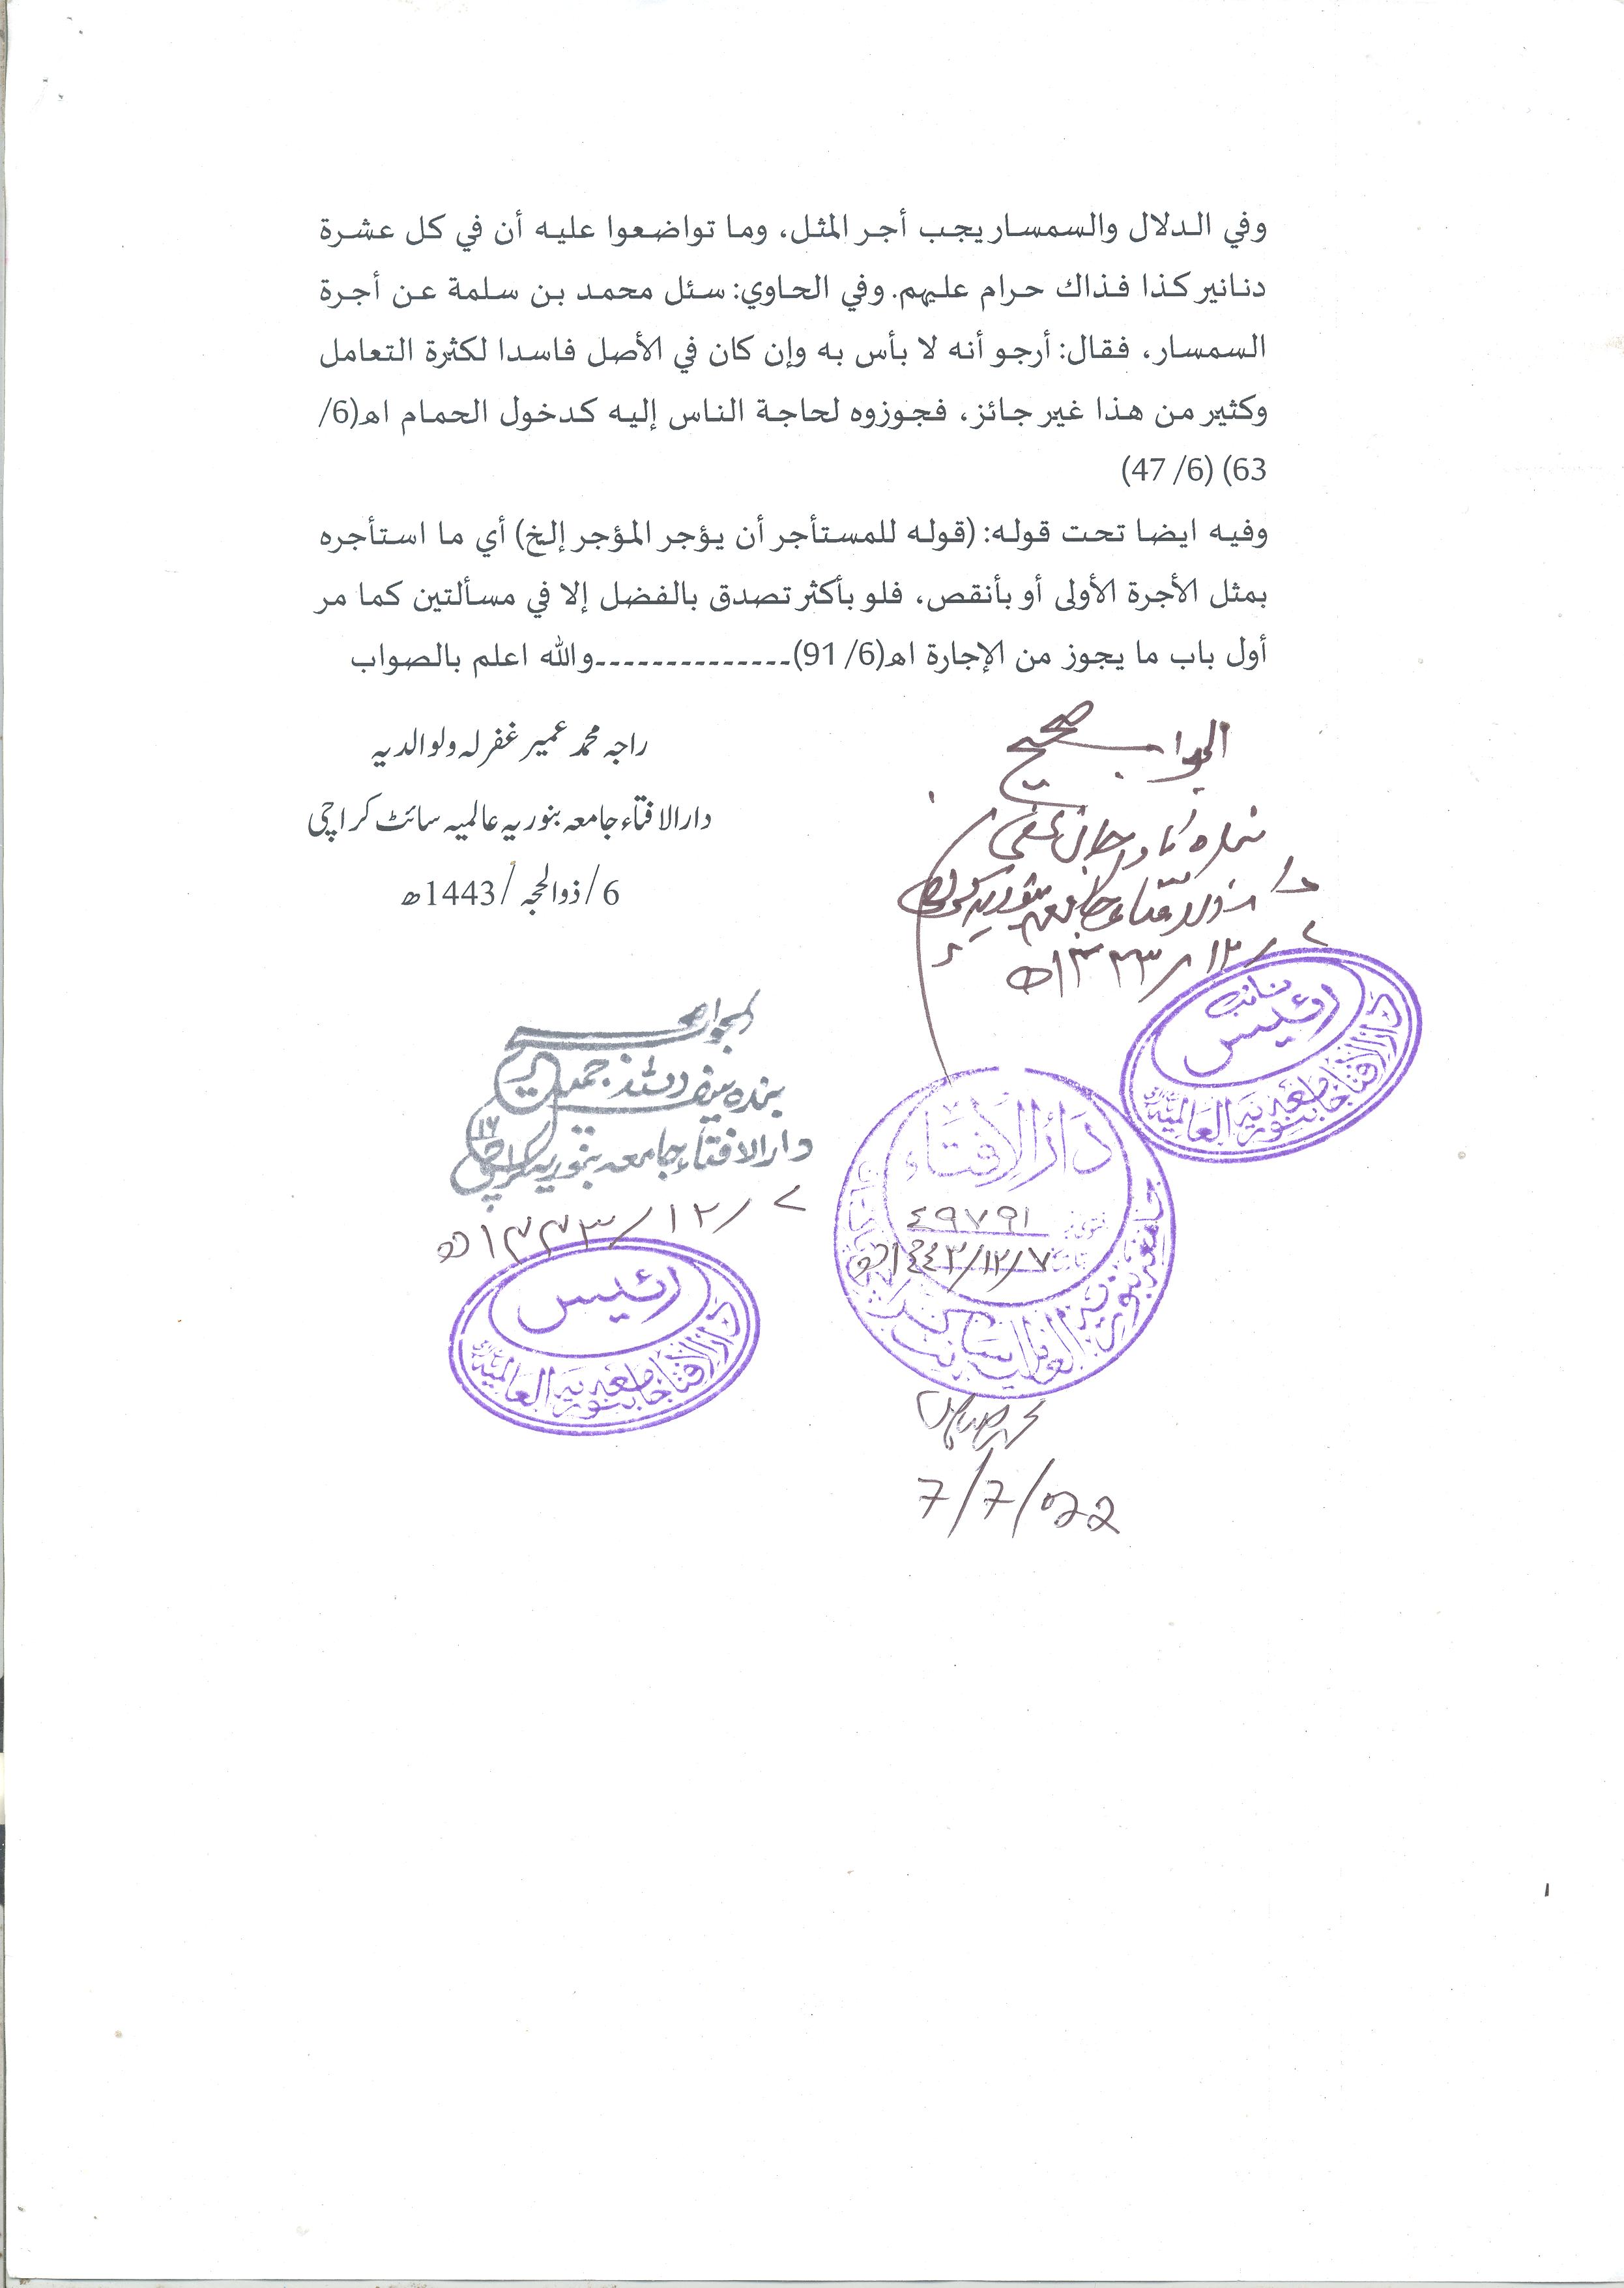 وفي الدلال والسمسار يجب أجر المثل، وما تواضعوا عليه أن في كل عشرة
دنانير كذا فذاك حرام عليهم. وفي الحاوي: سئل محمد بن سلمة عن أجرة
السمسار، فقال: أرجو أنه لا بأس به وإن كان في الأصل فاسدا لكثرة التعامل
وكثير من هذا غير جائز، فجوزوه لحاجة الناس إليه كدخول الحمام اهـ(6/
63) (6/ 47)
وفيه ايضا تحت قوله: (قوله للمستأجر أن يؤجر المؤجر إلخ) أي ما استأجره
بمثل الأجرة الأولى أو بأنقص، فلو بأكثر تصدق بالفضل إلا في مسألتين كما مر
أول باب ما يجوز من الإجارة اهـ(6/ 91)--------------والله اعلم بالصواب
راجہ محمد عمیر غفرلہ ولوالدیہ
دارالافتاء جامعہ بنوریہ عالمیہ سائٹ کراچی
6/ذوالحجہ/1443ھ
الجواب صحیح
دارالافتاء جامعہ بنوریہ کراچی
۷/۱۲/۱۴۴۳ھ
نائب
رئیس
دارالافتاء جامعہ بنوریہ العالمیہ
الجواب صحیح
بندہ سیف اللہ جمیل
دارالافتاء جامعہ بنوریہ کراچی
۷/۱۲/۱۴۴۳ھ
رئیس
دارالافتاء جامعہ بنوریہ العالمیہ
دَارُالاِفتَاء
٤٩٧٩١
١٤٤٣/١٢/٧ھ
جامعہ بنوریہ العالمیہ
7/7/022